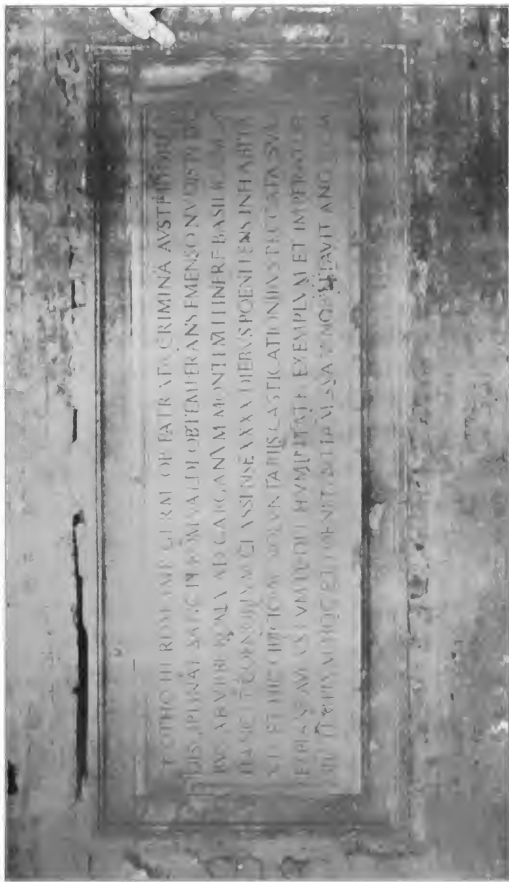 OTHO III ROM IMP GERM OB PATRATA CRIMINA AVSTERIORIS
DISCIPLINAE SANCTI ROMVALDI OBTEMPERANS EMENSO NVDIS PEDI
BVS AB VRBE ROMA AD GARGANVM MONTEM ITINERE BASILICAM
HANC ET COENOBIVM CLASSENSE XXXX DIEBVS POENITENS INHABITA
VIT ET HIC CILICIO AC VOLVNTARIIS CASTIGATIONIBVS PECCATA SVA
EXPIANS AVGVSTVM DEDIT HVMILITATIS EXEMPLVM ET IMPERATOR
TEMPLVM HOC ET POENITENTIAM SVAM NOBILITAVIT ANO